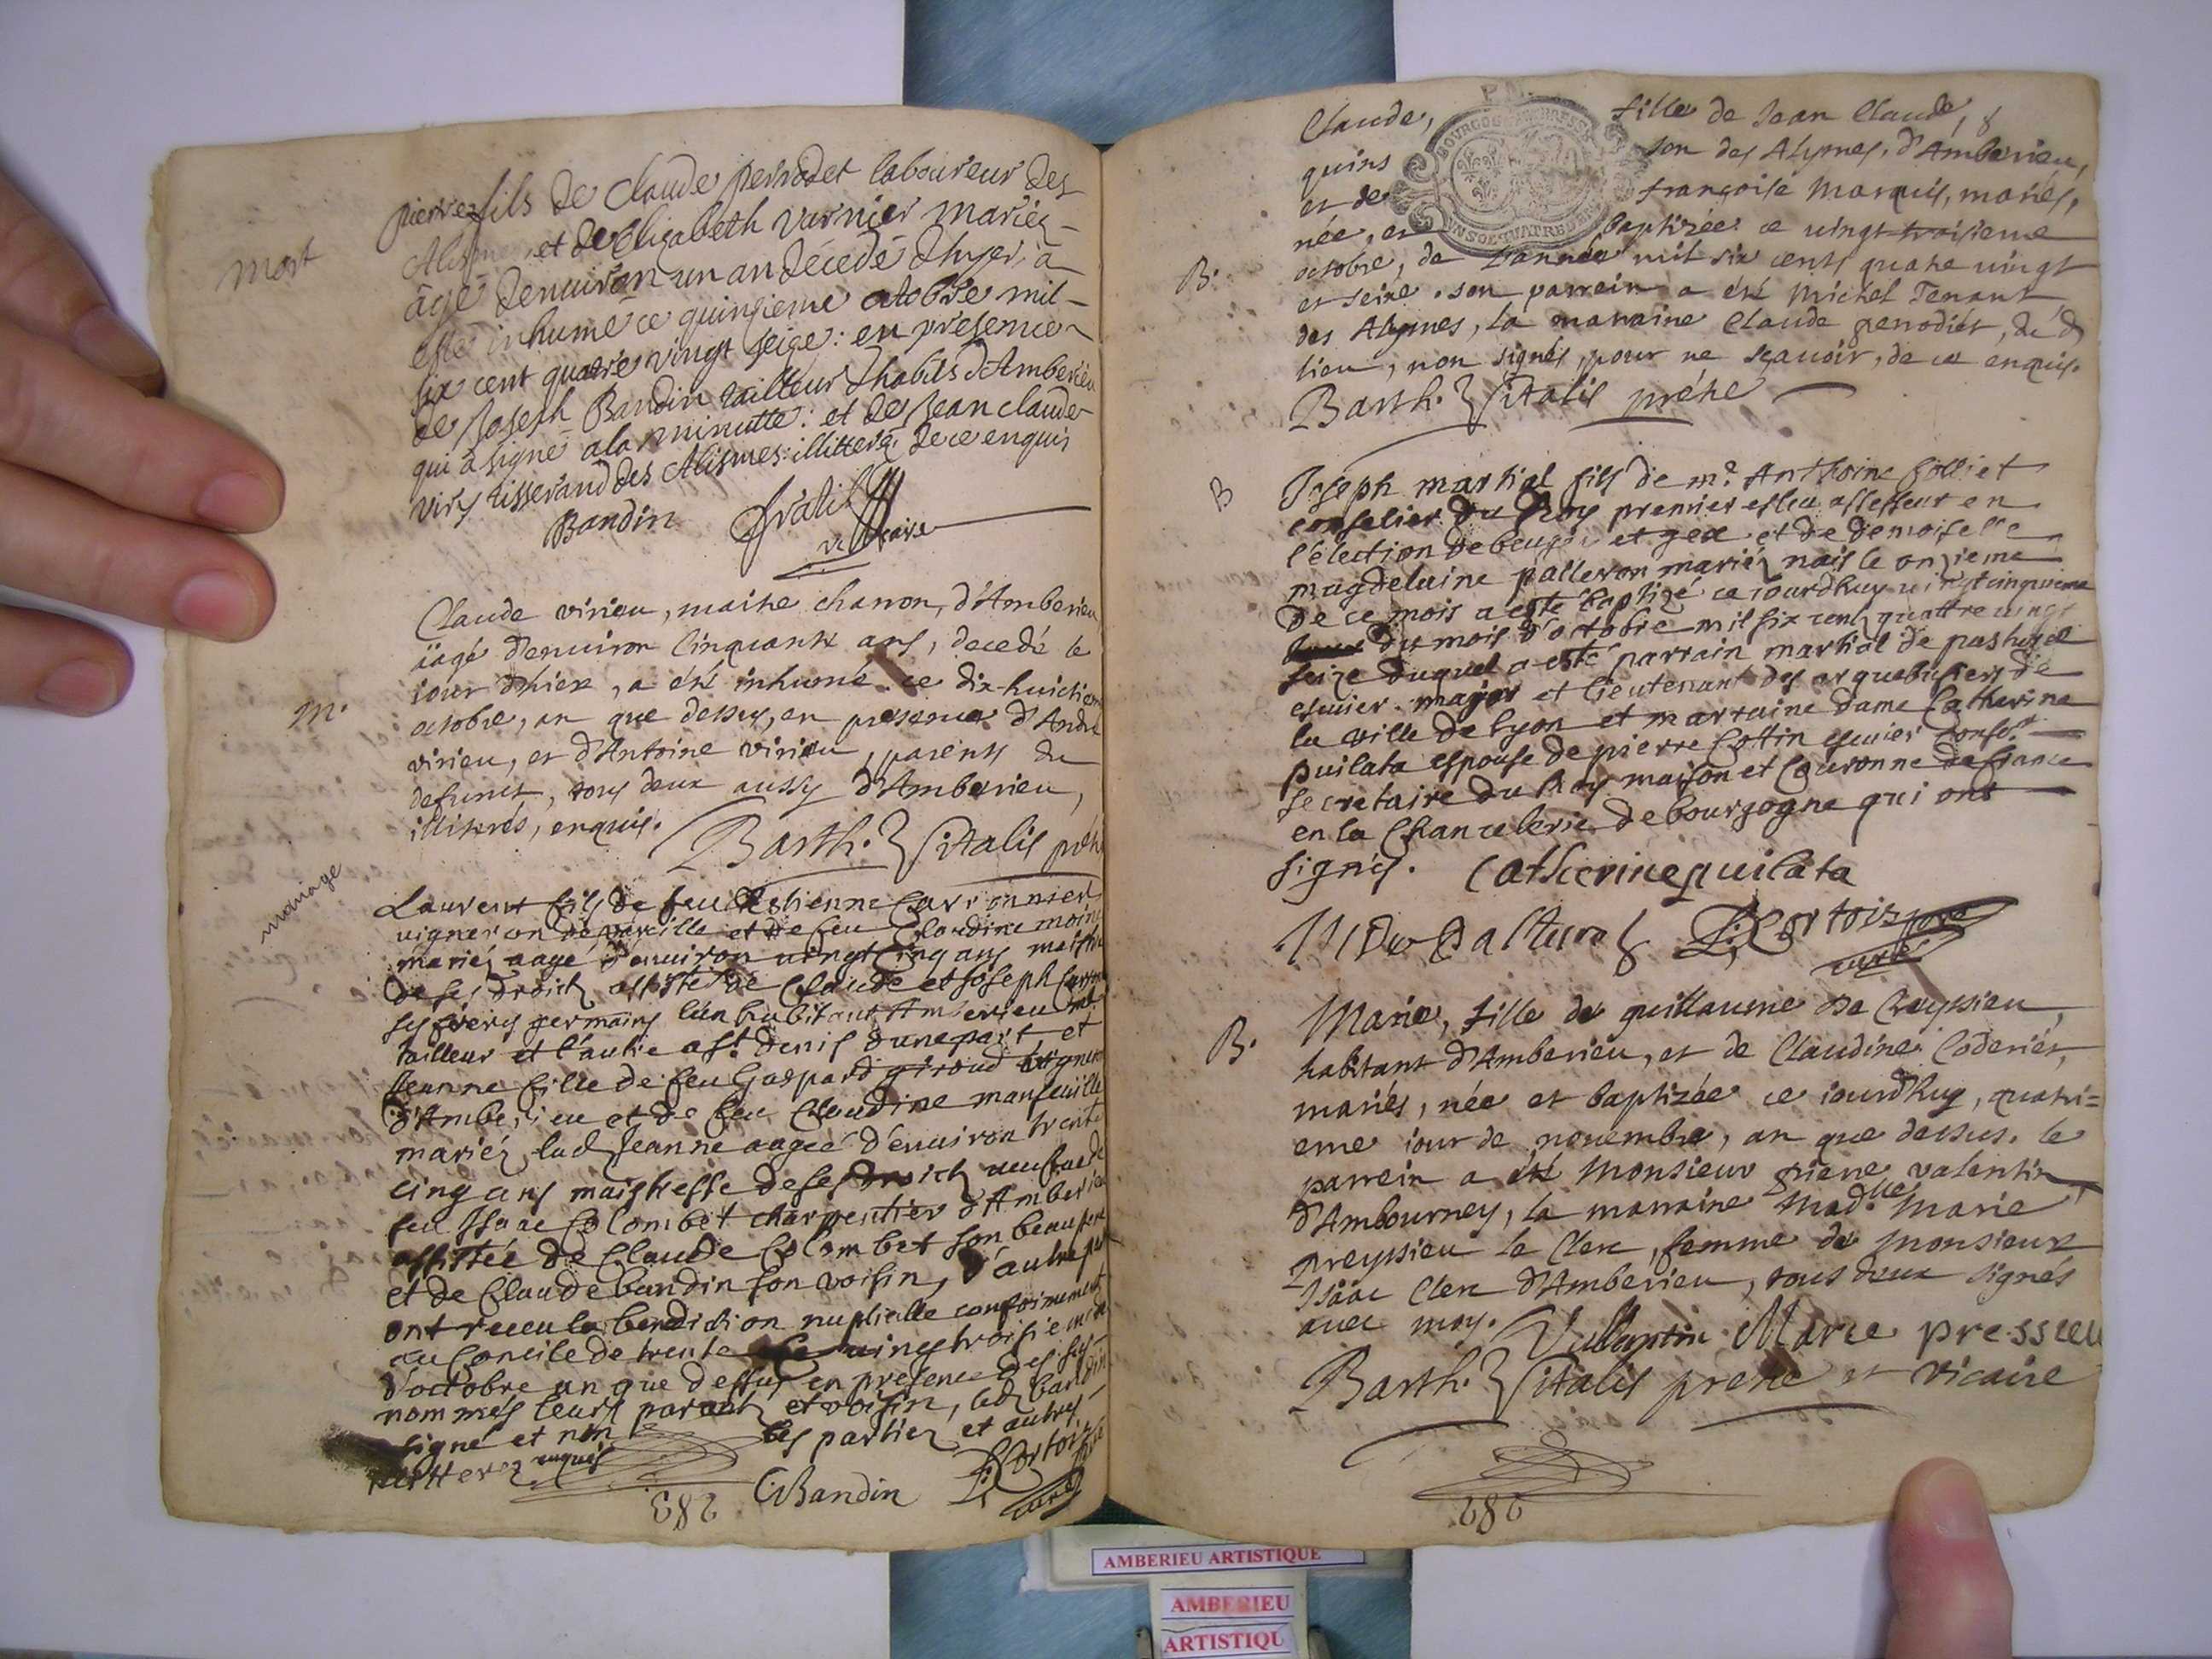 mort
pierre fils de Claude perrodet laboureur des
Alismes et de Elizabeth Varnier mariez
âgé denuiron un an décédé dhyer, à
esté inhumé ce quinzieme octobre mil
six cent quatre vingt seize: en presence
de Joseph Bandin tailleur dhabits d'Amberieu
qui à signé a la minutte: et de Jean claude
viry tisserand des Alismes: illitteré dece enquis
Bandin
vicaire
Claude virieu, maitre charron, d'Amberieu
aâgé d'enuiron Cinquante ans, decedé le
M.
iour d'hier, a été inhumé ce dix-huictiem
octobre, an que dessus, en presence d'André
virieu, et d'Antoine virieu, parents du
defunct, tous deux aussy d'Amberieu,
illiterés, enquis.
Barth. Vitalis prêtre
mariage
Laurent fils de feu Estienne Carronnier
vigneron de et de feu Claudine moine
mariéz aagé d'enuiron vingt cinq ans maistre
de ses droictz assisté de Claude et Joseph
ses freres germains l'un habitant Amberieu
tailleur et l'autre a st. denis d'une part et
Jeanne fille de feu Gaspard giroud vigneron
d'Amberieu et de feu Claudine manfeuille
mariéz lad Jeanne aagée d'enuiron trente
cinq ans maistresse de ses droictz de
feu Isaac Colombet charpentier d'Amberieu
assistée de Claude Colombet son beau pere
et de Claude bandin son voisin, d'autre part
ont receu la benediction nuptialle conformement
au Concile de trente ce vingt troisieme
d'octobre an que dessus en presence des sus
nommés leurs parents et voisin, led bandin
signé et non les parties et autres
illitterez enquis
C Bandin
curé
283
Claude, fille de Jean Claude,
quins son des Alymes, d'Amberieu,
et de françoise Marquis, mariés,
née, et baptizée ce uingt troisieme
B.
octobre, de l'année mil six cents quatre uingt
et seize. son parrein a été Michel Tenant
des Alymes, la marraine Claude perrodiet, dud
lieu, non signés, pour ne sçauoir, de ce enquis.
Barth. Vitalis prêtre
B
Joseph martial fils de mr. Anthoine folliet
conselier du Roy premier esleu assesseur en
l'élection de beugei et gex et de demoiselle
magdelaine palleron mariéz nais le onzieme
de ce mois a esté baptizé ce iourdhuy uingtcinquieme
du mois d'octobre mil six centz quattre uingt
seize duquel a esté parrain martial de pasturel
escuier major et lieutenant des arquebusiers de
la ville de Lyon et marraine dame Catherine
puilata espouse de pierre Cottin escuier conser.
secretaire du Roy maison et Couronne de france
en la Chancelerie de bourgogne qui ont
signés. Catherine puilata
curé
B.
Marie, fille de guillaume de Creyssieu,
habitant d'Amberieu, et de Claudine Coderiet,
mariés, née et baptizée ce iourdhuy, quatri=
eme iour de nouembre, an que dessus. le
parrein a été Monsieur pierre valentin,
d'Ambourney, la marraine Madlle. Marie
preyssieu le Clerc, femme de Monsieur
Isâac Clerc d'Amberieu, tous deux signés
auec moy. Vallantin Marie pressieu
Barth. Vitalis pretre et vicaire
282
AMBERIEU ARTISTIQUE
AMBERIEU
ARTISTIQU